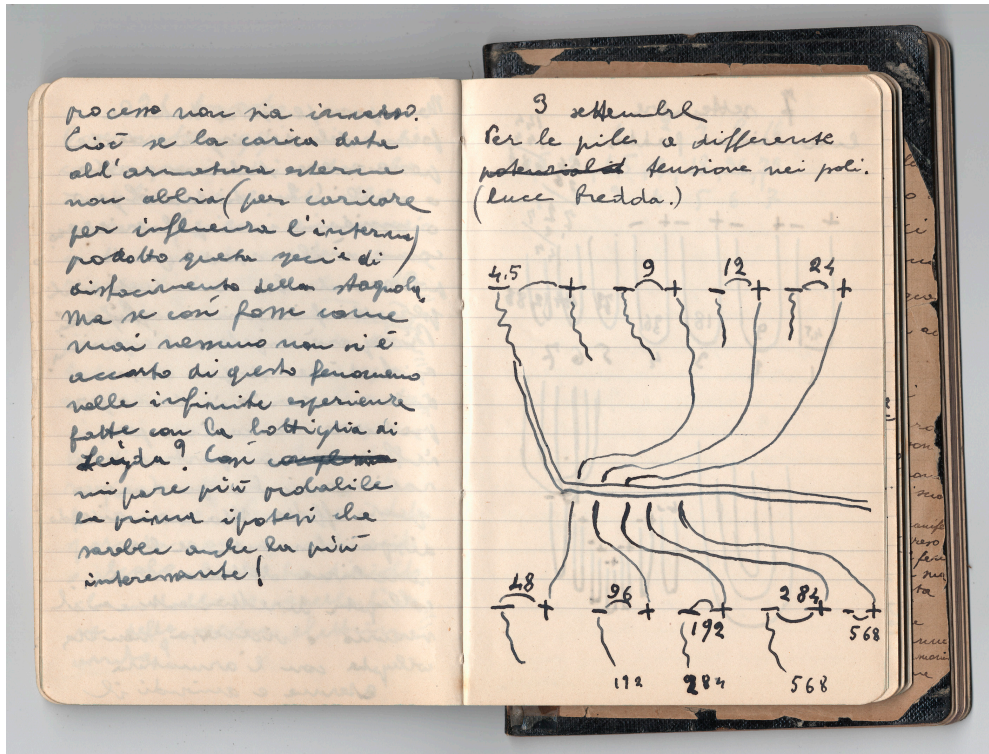 processo non sia inverso.
Cioè se la carica data
all'armatura esterna
non abbia (per caricare
per influenza l'interna)
prodotto questa specie di
disfacimento della stagnola,
Ma se così fosse come
mai nessuno non si è
accorto di questo fenomeno
nelle infinite esperienze
fatte con la bottiglia di
Leyda? Così
mi pare più probabile
la prima ipotesi che
sarebbe anche la più
interessante!
3 settembre
Per le pile a differente
tensione nei poli.
(luce fredda.)
4,5 9 12 24
- + - + - + - +
48 96 192 284 568
- + - + - + - + - +
192 284 568